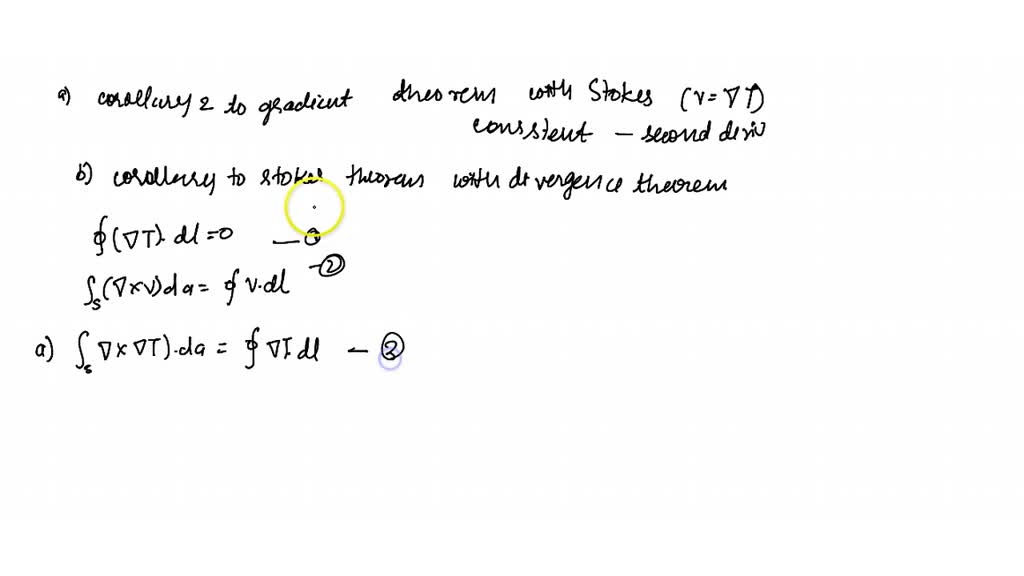 a) corollary 2 to gradient theorem with Stokes (v = ∇T)
consstent – second deriv
b) corollary to stokes theorem with divergence theorem
∮(∇T). dl = 0 — ①
∫s (∇×v) da = ∮ v.dl — ②
a) ∫s ∇×∇T).da = ∮ ∇T. dl — ③